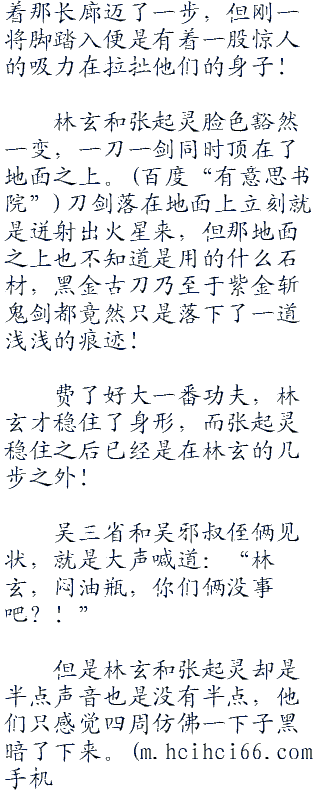 着那长廊迈了一步，但刚一
将脚踏入便是有着一股惊人
的吸力在拉扯他们的身子！
林玄和张起灵脸色豁然
一变，一刀一剑同时顶在了
地面之上。(百度“有意思书
院”)刀剑落在地面上立刻就
是迸射出火星来，但那地面
之上也不知道是用的什么石
材，黑金古刀乃至于紫金斩
鬼剑都竟然只是落下了一道
浅浅的痕迹！
费了好大一番功夫，林
玄才稳住了身形，而张起灵
稳住之后已经是在林玄的几
步之外！
吴三省和吴邪叔侄俩见
状，就是大声喊道：“林
玄，闷油瓶，你们俩没事
吧？！”
但是林玄和张起灵却是
半点声音也是没有半点，他
们只感觉四周仿佛一下子黑
暗了下来。(m.hcihci66.com
手机